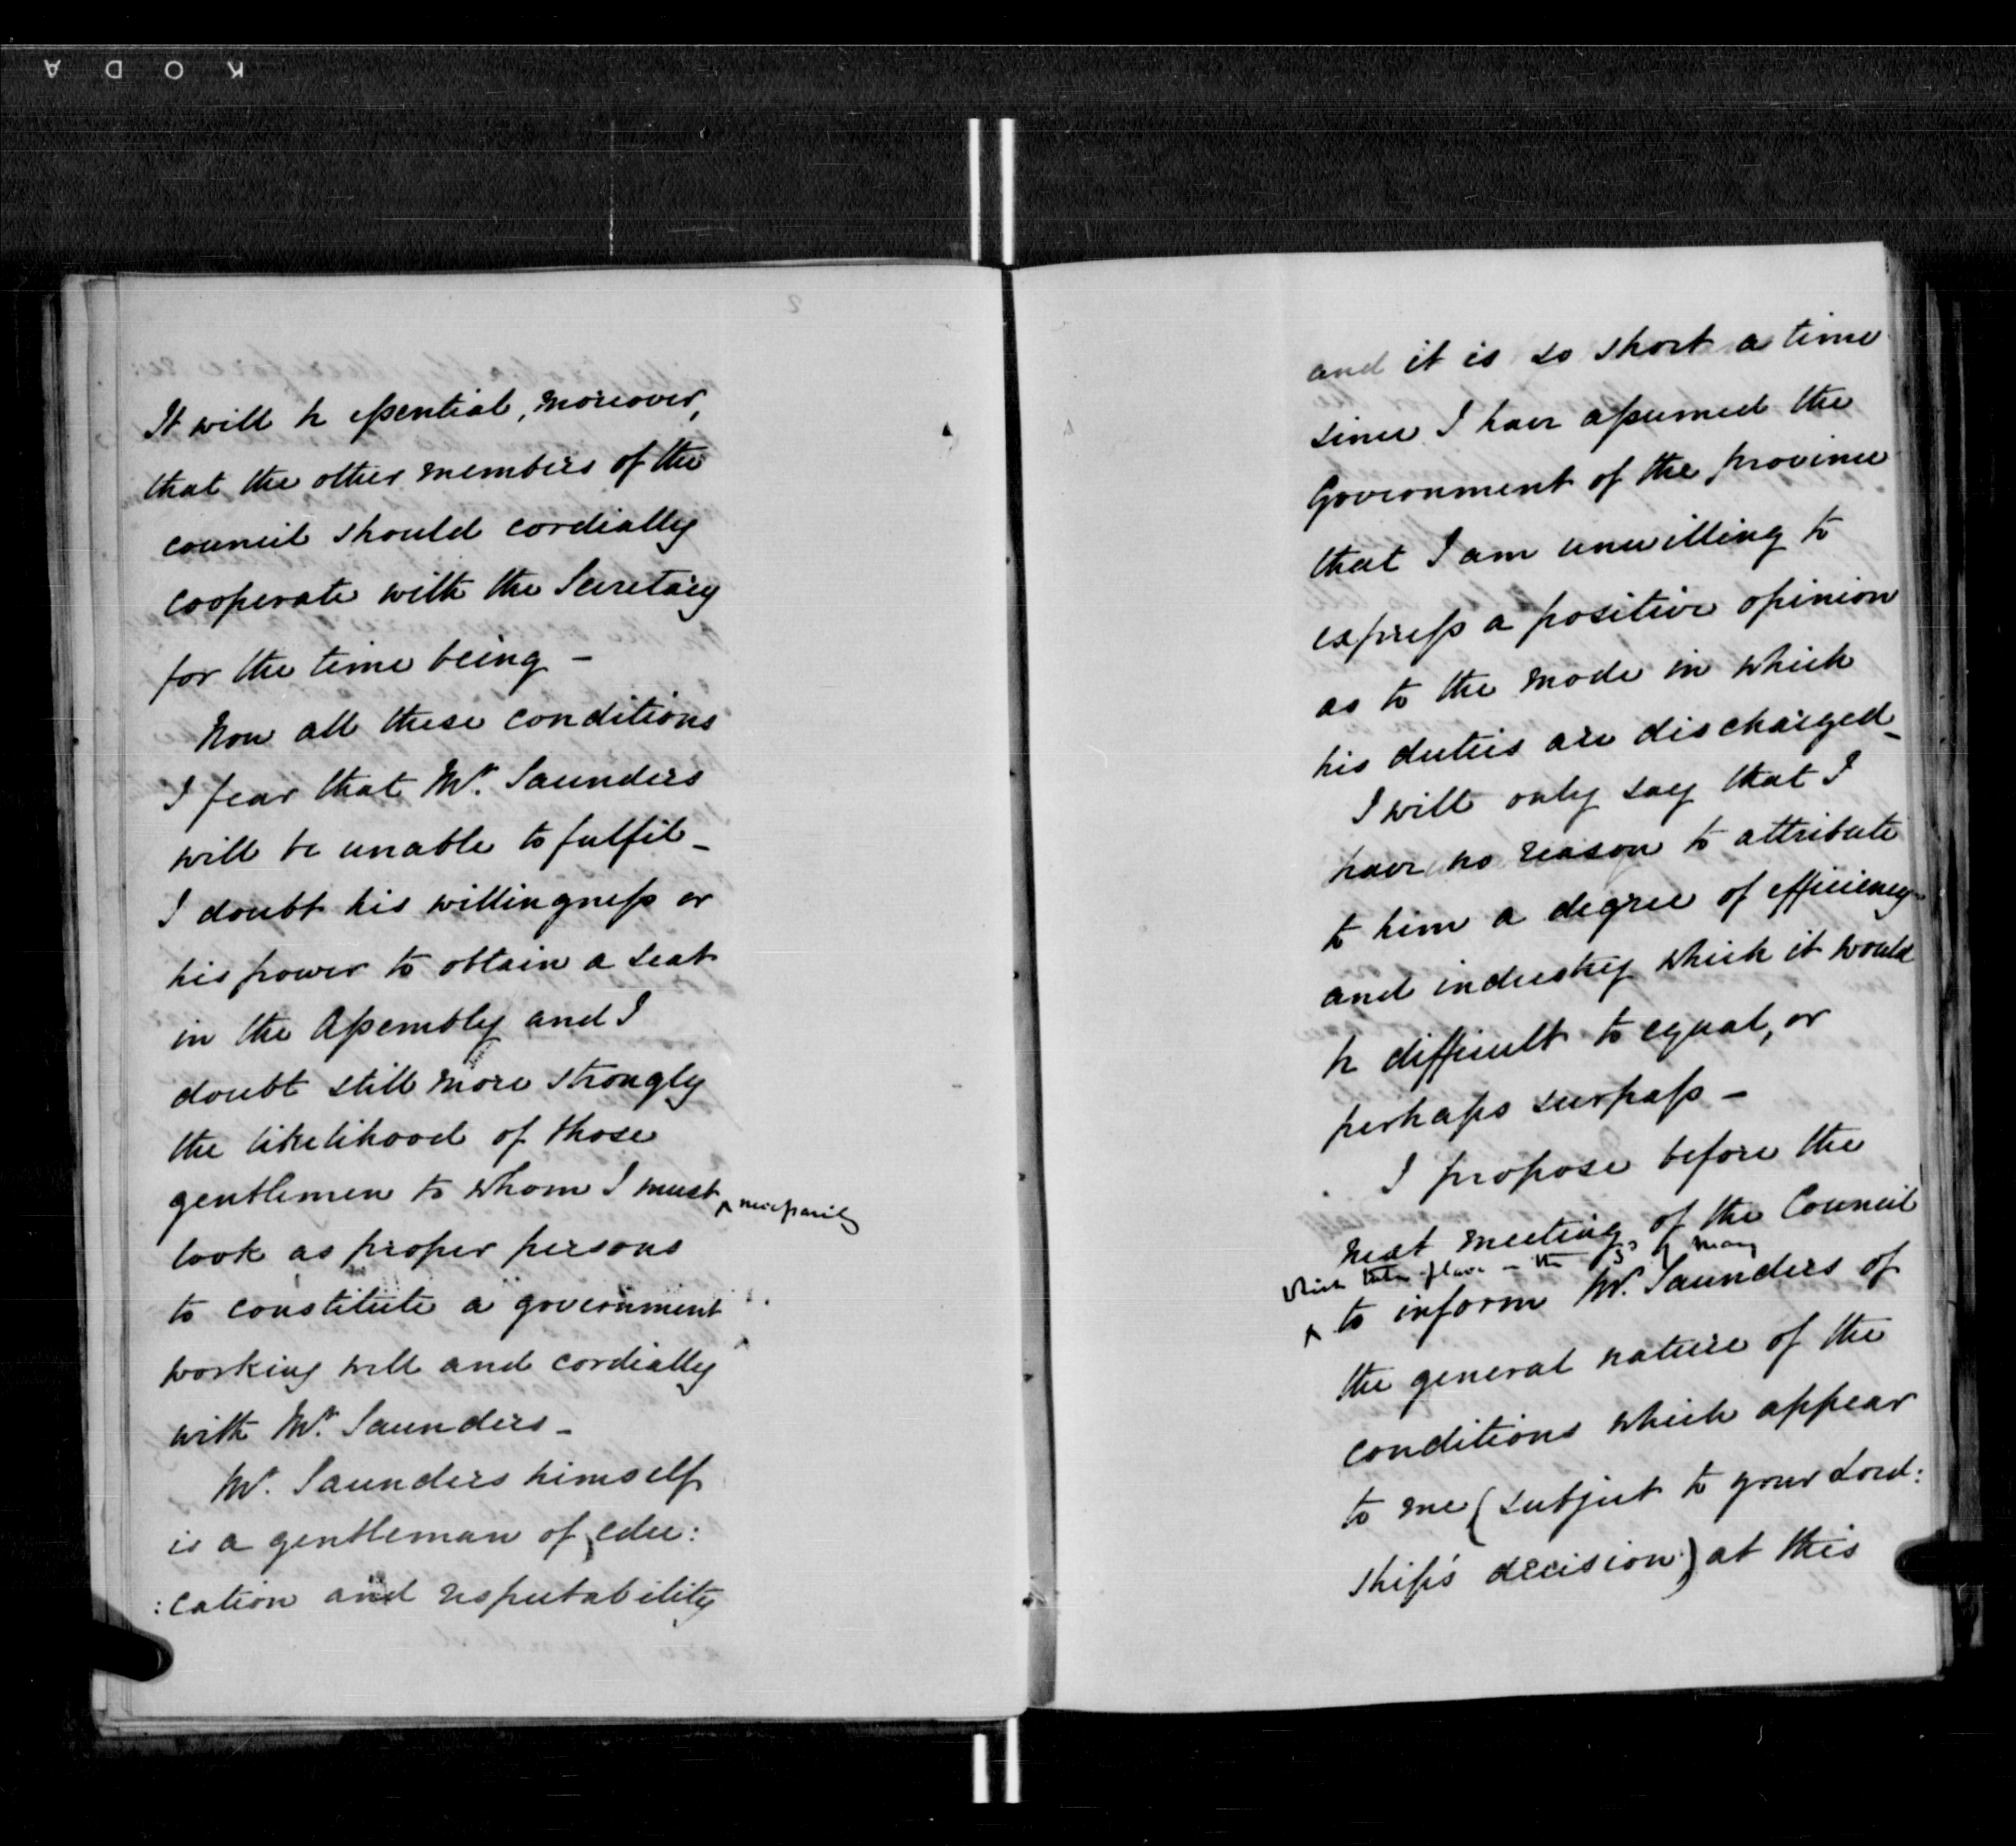 KODA
It will be essential, moreover,
that the other members of the
council should cordially
cooperate with the Secretary
for the time being –
Now all these conditions
I fear that Mr. Saunders
will be unable to fulfil –
I doubt his willingness or
his power to obtain a seat
in the Assembly and I
doubt still more strongly
the likelihood of those
gentlemen to whom I must ^ necessarily
look as proper persons
to constitute a government
working well and cordially
with Mr. Saunders –
Mr. Saunders himself
is a gentleman of edu:
:cation and respectability
and it is so short a time
since I have assumed the
Government of the province
that I am unwilling to
express a positive opinion
as to the mode in which
his duties are discharged –
I will only say that I
have no reason to attribute
to him a degree of efficiency
and industry which it would
be difficult to equal, or
perhaps surpass –
I propose before the
next meeting of the Council
which takes place on the of May
^ to inform Mr. Saunders of
the general nature of the
conditions which appear
to me (subject to your Lord:
ship's decision) at this